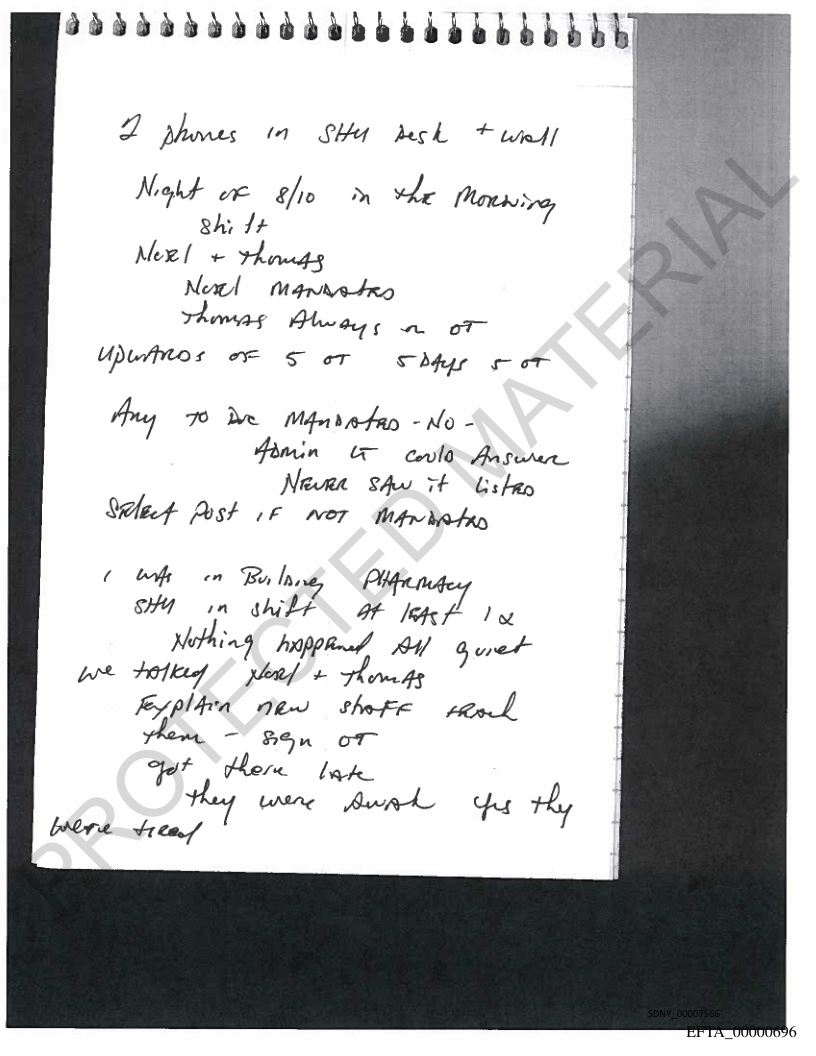 2 phones in SHU Desk + wall
Night of 8/10 in the Morning
shift
Noel + Thomas
Noel MANDATED
Thomas Always on OT
UPWARDS OF 5 OT 5 DAYS 5 OT
Any TO Dve MANDATED - NO -
Admin LT could Answer
NEVER SAW it listed
Select Post IF NOT MANDATED
I was in Building PHARMACY
SHU in shift At least 1x
Nothing happened All quiet
we talked Noel + Thomas
Explain new staff teach
them - sign OT
got there late
they were awak yes they
were tired
PROTECTED MATERIAL
SDNY_00007566
EFTA_00000696